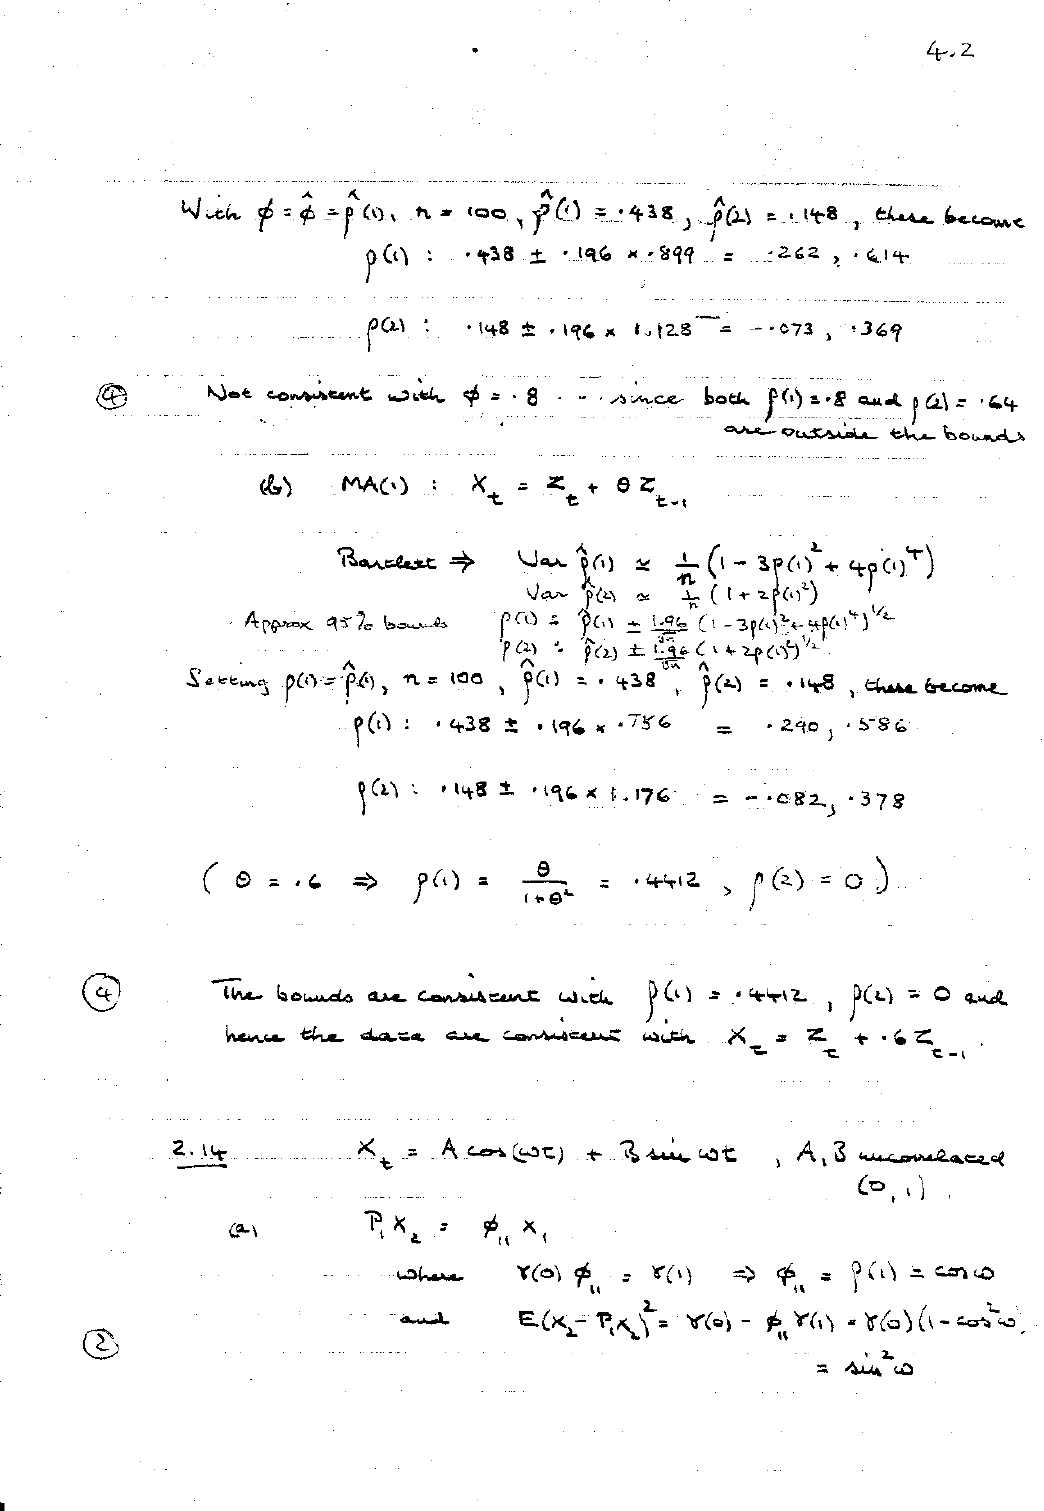 4.2
With φ = φ̂ = ρ̂(1), n = 100, ρ̂(1) = .438, ρ̂(2) = .148, these become
ρ(1) : .438 ± .196 × .899 = .262, .614
ρ(2) : .148 ± .196 × 1.128 = -.073, .369
④ Not consistent with φ = .8 - - since both ρ(1) = .8 and ρ(2) = .64
are outside the bounds
(b) MA(1) : X_t = Z_t + θ Z_{t-1}
Bartlett ⇒ Var ρ̂(1) ≃ 1/n (1 - 3ρ(1)² + 4ρ(1)⁴)
Var ρ̂(2) ≃ 1/n (1 + 2ρ(1)²)
Approx 95% bounds ρ(1) : ρ̂(1) ± 1.96/√n (1 - 3ρ(1)² + 4ρ(1)⁴)^{1/2}
ρ(2) : ρ̂(2) ± 1.96/√n (1 + 2ρ(1)²)^{1/2}
Setting ρ(1) = ρ̂(1), n = 100, ρ̂(1) = .438, ρ̂(2) = .148, these become
ρ(1) : .438 ± .196 × .756 = .290, .586
ρ(2) : .148 ± .196 × 1.176 = -.082, .378
( θ = .6 ⇒ ρ(1) = θ/(1+θ²) = .4412, ρ(2) = 0 )
④ The bounds are consistent with ρ(1) = .4412, ρ(2) = 0 and
hence the data are consistent with X_t = Z_t + .6 Z_{t-1}.
2.14 X_t = A cos(ωt) + B sin ωt , A, B uncorrelated
(0, 1).
(a) P₁X₂ = φ₁₁ X₁
where γ(0) φ₁₁ = γ(1) ⇒ φ₁₁ = ρ(1) = cos ω
and E(X₂ - P₁X₂)² = γ(0) - φ₁₁ γ(1) = γ(0)(1 - cos²ω)
② = sin²ω